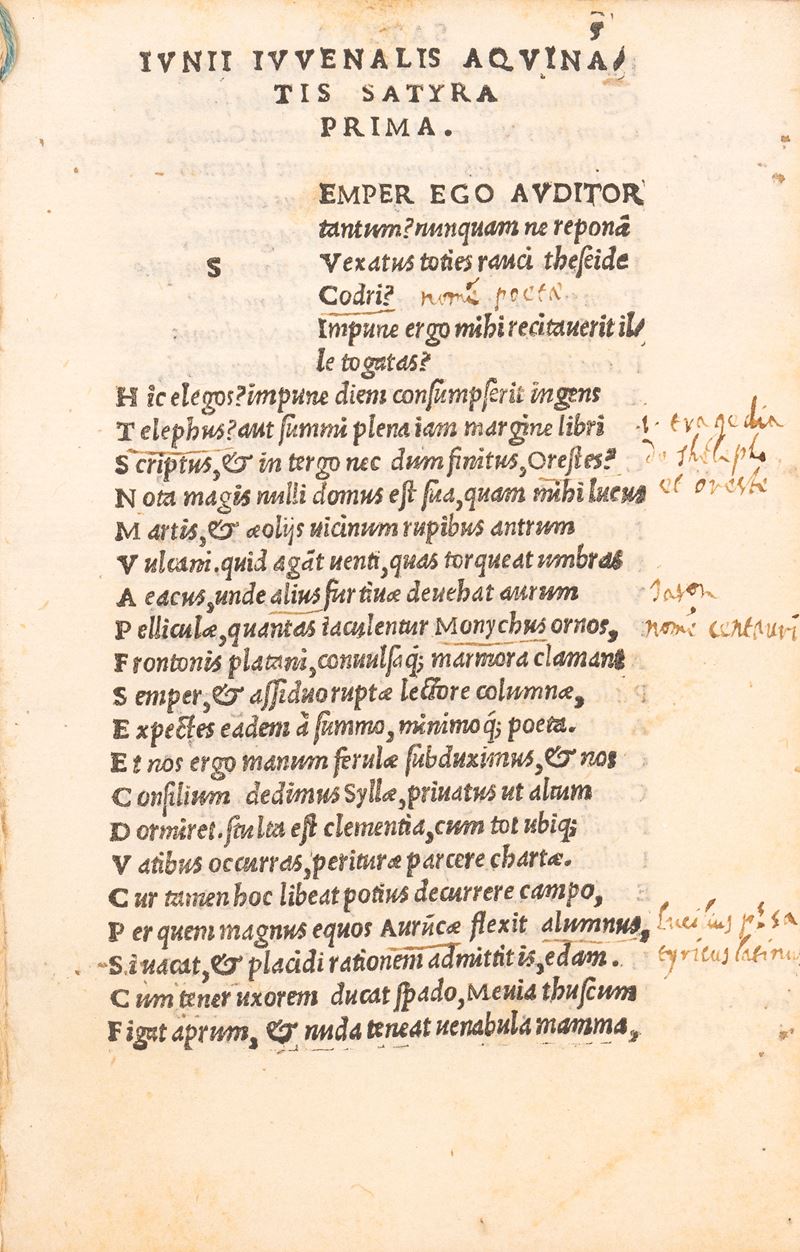 IVNII IVVENALIS AQVINA/
TIS SATYRA
PRIMA.
SEMPER EGO AVDITOR
tantum?nunquam ne reponā
Vexatus toties rauci theſeide
Codri? nomē poetæ
Impune ergo mihi recitauerit il/
le togatas?
H ic elegos?impune diem conſumpſerit ingens
T elephus?aut ſummi plena iam margine libri
S criptus,& in tergo nec dum finitus,Oreſtes?
N ota magis nulli domus eſt ſua,quam mihi lucus
M artis,& æolijs uicinum rupibus antrum
V ulcani.quid agāt uenti,quas torqueat umbras
A eacus,unde alius furtiuæ deuehat aurum
P elliculæ,quantas iaculentur Monychus ornos,
F rontonis platani,conuulſaq; marmora clamant
S emper,& aſſiduo ruptæ lectore columnæ,
E xpectes eadem à ſummo,minimoq; poeta.
E t nos ergo manum ferulæ ſubduximus,& nos
C onſilium dedimus Syllæ,priuatus ut altum
D ormiret.ſtulta eſt clementia,cum tot ubiq;
V atibus occurras,perituræ parcere chartæ.
C ur tamen hoc libeat potius decurrere campo,
P er quem magnus equos Aurūcæ flexit alumnus,
S i uacat,& placidi rationem admittitis,edam.
C um tener uxorem ducat ſpado,Meuia thuſcum
F igat aprum, & nuda teneat uenabula mamma,
tragedia
et oreste
Jason
nomē centauri
latinus